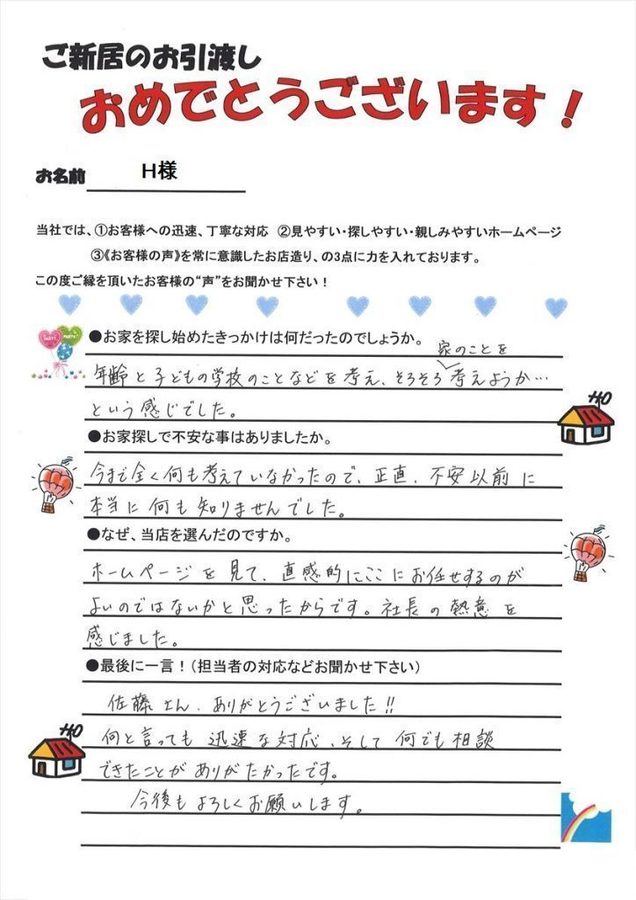 ご新居のお引渡し
おめでとうございます!
お名前 H様
当社では、①お客様への迅速、丁寧な対応 ②見やすい・探しやすい・親しみやすいホームページ
③《お客様の声》を常に意識したお店造り、の3点に力を入れております。
この度ご縁を頂いたお客様の“声”をお聞かせ下さい!
●お家を探し始めたきっかけは何だったのでしょうか。
家のことを
年齢と子どもの学校のことなどを考え、そろそろ考えようか…
という感じでした。
●お家探しで不安な事はありましたか。
今まで全く何も考えていなかったので、正直、不安以前に
本当に何も知りませんでした。
●なぜ、当店を選んだのですか。
ホームページを見て、直感的にここにお任せするのが
よいのではないかと思ったからです。社長の熱意を
感じました。
●最後に一言!(担当者の対応などお聞かせ下さい)
佐藤さん、ありがとうございました!!
何と言っても迅速な対応、そして何でも相談
できたことがありがたかったです。
今後もよろしくお願いします。